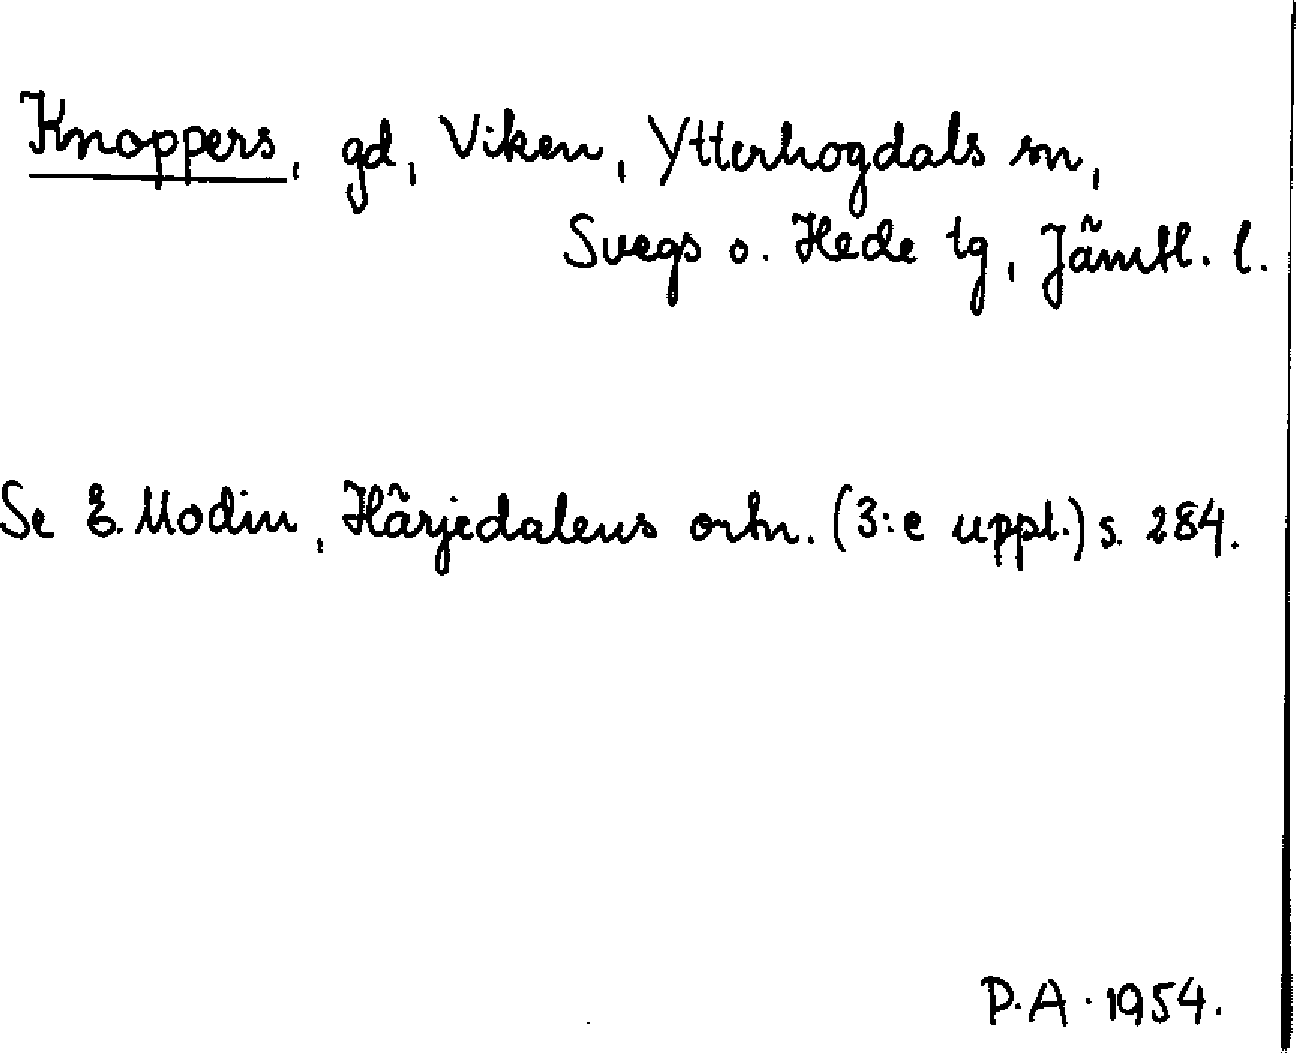 Knoppers, gd, Viken, Ytterhogdals sn,
Svegs o. Hede tg, Jämtl. l.
Se E. Modin, Härjedalens ortn. (3:e uppl.) s. 284.
P.A. 1954.